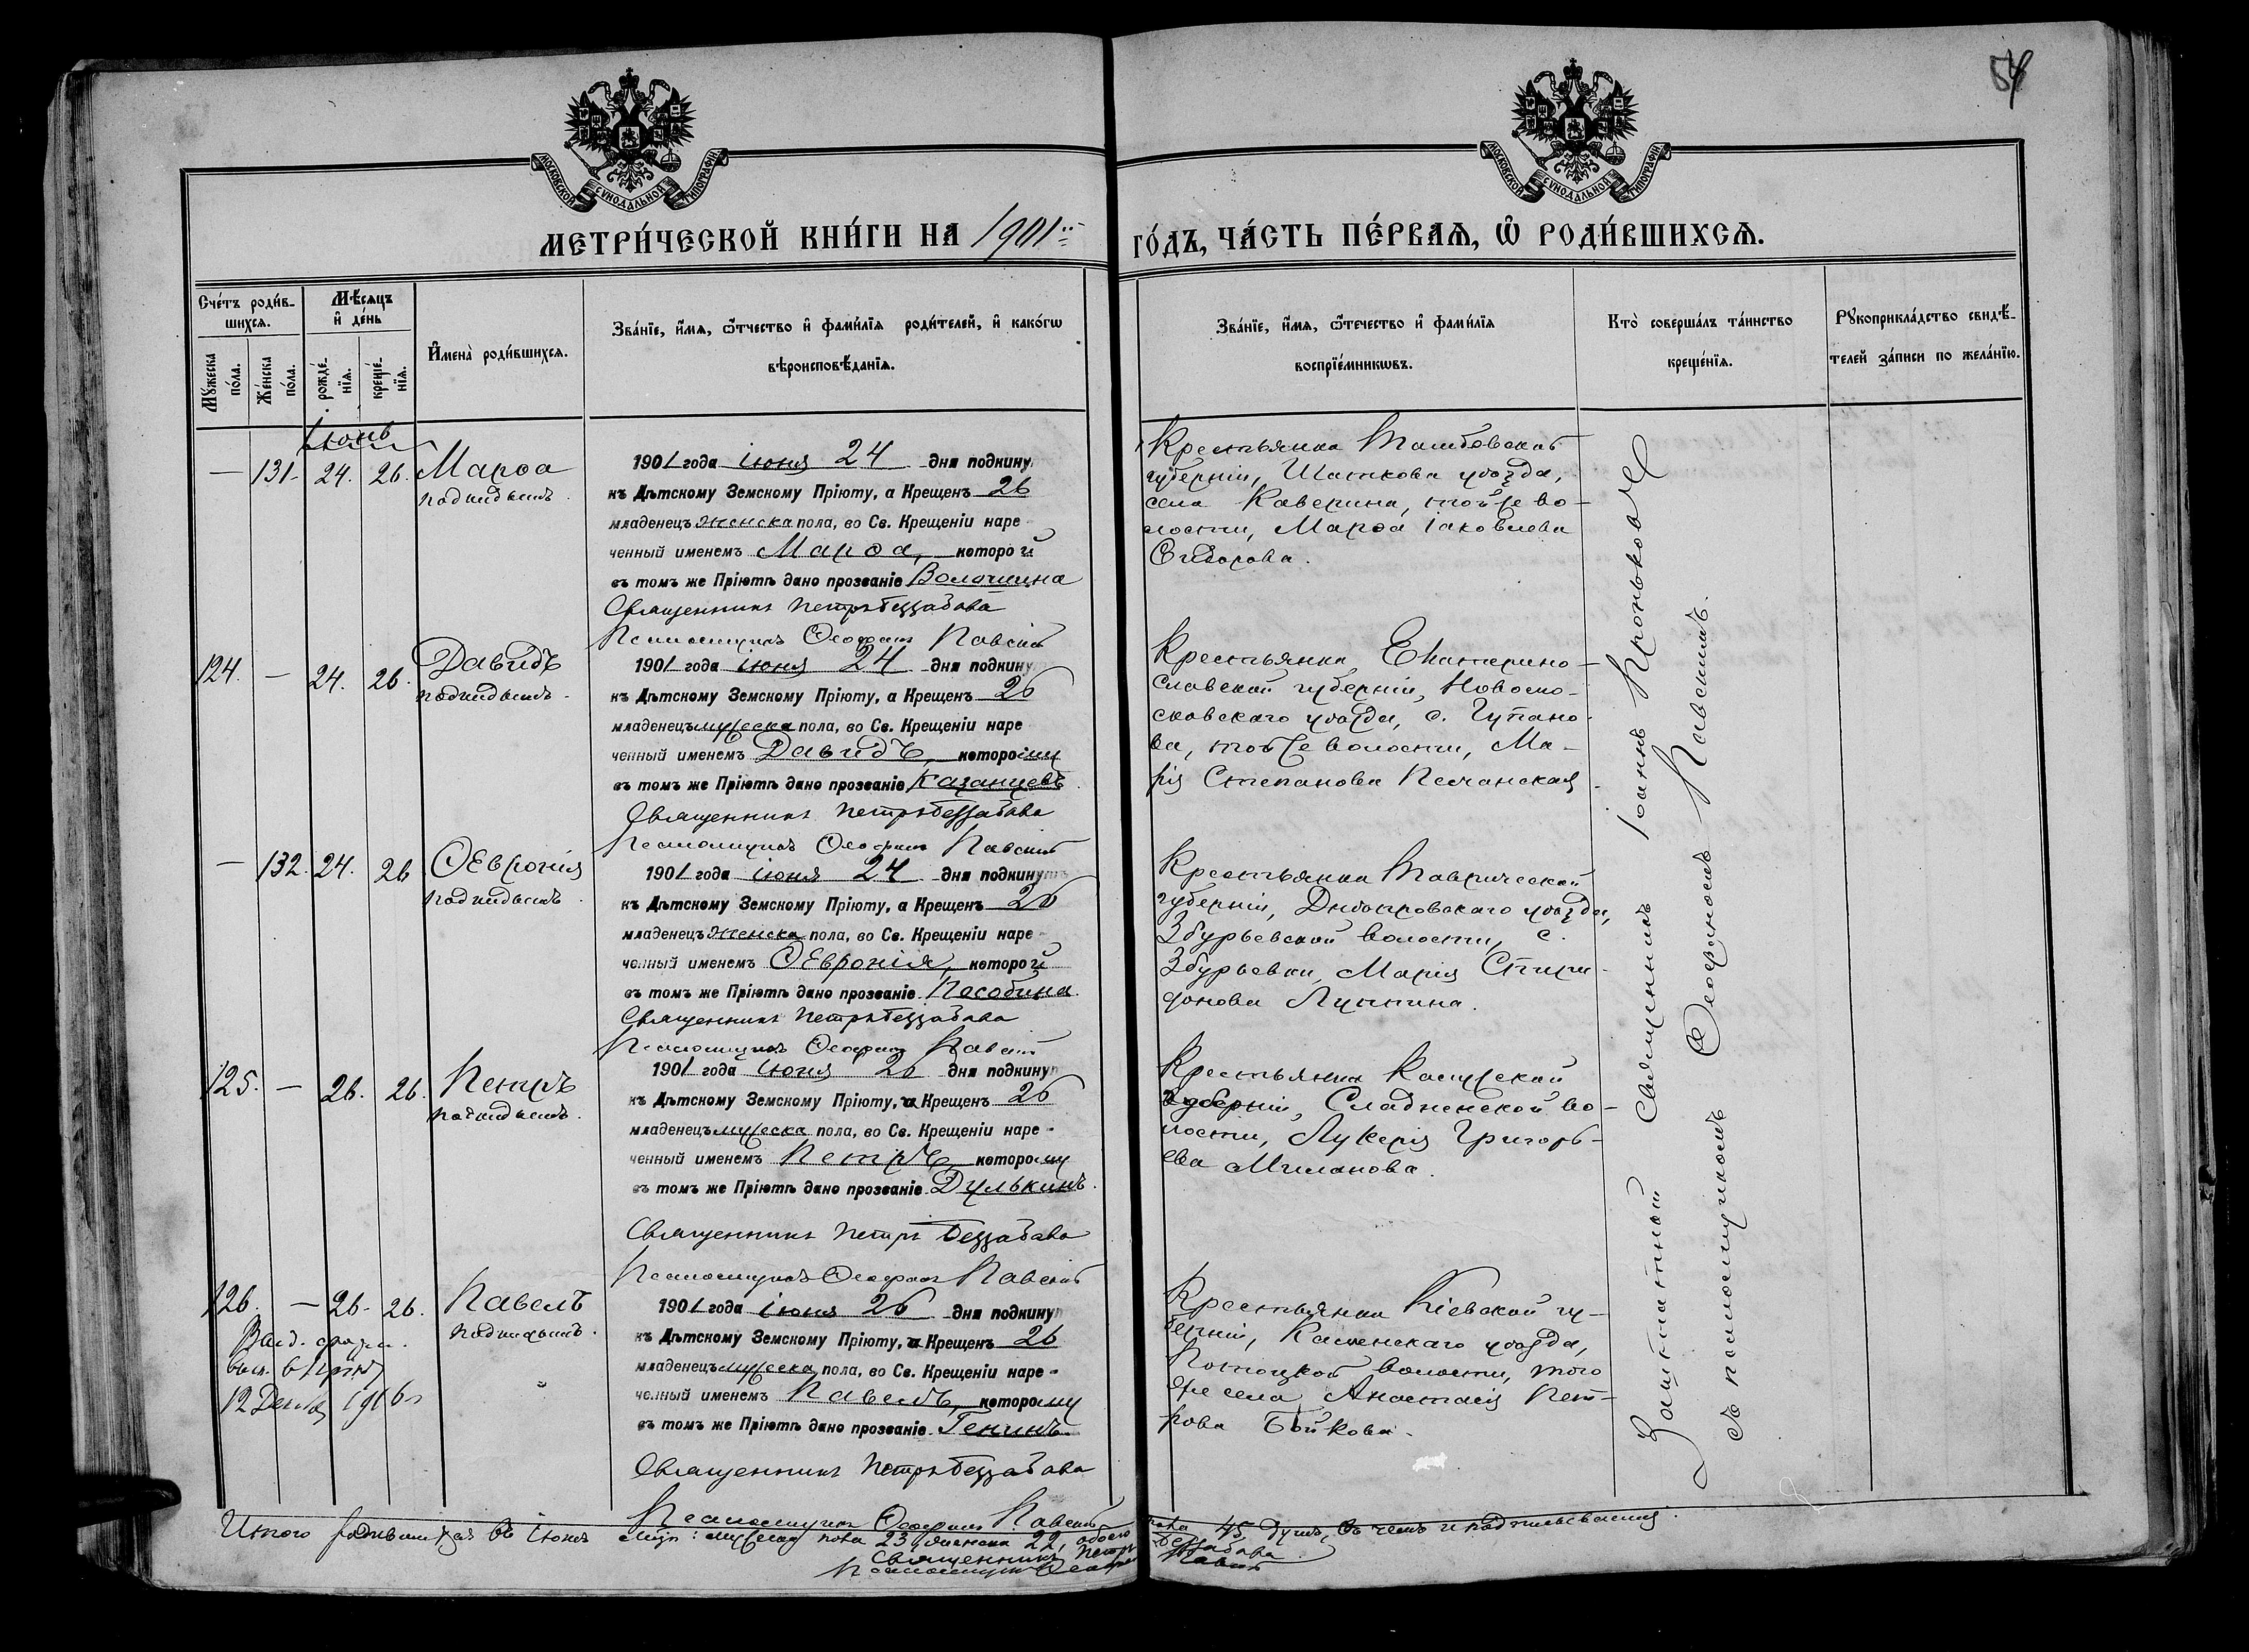 54
МОСКОВСКОЙ СУНОДАЛЬНОЙ ТИПОГРАФІИ.
МОСКОВСКОЙ СУНОДАЛЬНОЙ ТИПОГРАФІИ.
МЕТРИ́ЧЕСКОЙ КНИ́ГИ НА 1901й
ГО́ДЪ, ЧА́СТЬ ПЕ́РВАѦ, Ѡ РОДИ́ВШИХСѦ.
Сче́тъ роди́в-
шихсѧ.
Мꙋжеска по́ла.
Же́нска по́ла.
Мѣ́сѧцъ
и҆ де́нь
рожде́-
нїѧ.
креще́-
нїѧ.
И҆мена̀ роди́вшихсѧ.
Зва́нїе, и҆́мѧ, ѻ҆́тчество и҆ фами́лїѧ роди́телей, и҆ како́гѡ
вѣроисповѣ́данїѧ.
Зва́нїе, и҆́мѧ, ѻ҆те́чество и҆ фами́лїѧ
воспрїе́мникѡвъ.
Кто̀ соверша́лъ та́инство
креще́нїѧ.
Рꙋкоприкла́дство свидѣ́-
телей за́писи по жела́нїю.
Іюнь
— 131- 24. 26. Марѳа
подкидышъ.
1901 года іюня 24 дня подкину
къ Дѣтскому Земскому Пріюту, а Крещенъ 26
младенецъ женска пола, во Св. Крещеніи наре-
ченный именемъ Марѳа, которой
въ томъ же Пріютѣ дано прозваніе Волошина
Священникъ Петръ Беззабава
Псаломщикъ Ѳеофанъ Павскій
Крестьянка Тамбовской
губерніи, Шацкова уѣзда,
села Каверина, той же во-
лости, Марѳа Іаковлева
Сидорова.
124. — 24. 26. Давидъ
подкидышъ.
1901 года іюня 24 дня подкину
къ Дѣтскому Земскому Пріюту, а Крещенъ 26
младенецъ мужеска пола, во Св. Крещеніи наре
ченный именемъ Давидъ, которому
въ томъ же Пріютѣ дано прозваніе Казанцевъ.
Священникъ Петръ Беззабава
Псаломщикъ Ѳеофанъ Павскій
Крестьянка Екатерино-
славской губерніи, Новомо-
сковскаго уѣзда, с.
той же волости, Ма-
рія Степанова Песчанская.
— 132. 24. 26 Ѳеѵронія
подкидышъ.
1901 года іюня 24 дня подкинутъ
къ Дѣтскому Земскому Пріюту, а Крещенъ 26
младенецъ женска пола, во Св. Крещеніи наре-
ченный именемъ Ѳевронія, которой
въ томъ же Пріютѣ дано прозваніе Пособина.
Священникъ Петръ Беззабава
Псаломщикъ Ѳеофанъ Павскій
Крестьянка Таврической
губерніи, Днѣпровскаго уѣзда,
Збурьевской волости, с.
Збурьевки, Марія Спири-
донова
125. — 26. 26. Петръ
подкидышъ.
1901 года іюня 26 дня подкину
къ Дѣтскому Земскому Пріюту, а Крещенъ 26
младенецъ мужеска пола, во Св. Крещеніи наре-
ченный именемъ Петръ, которому
въ томъ же Пріютѣ дано прозваніе Дулькинъ.
Священникъ Петръ Беззабава
Псаломщикъ Ѳеофанъ Павскій
Крестьянка Калужской
губерніи, во-
лости, Лукерія Григорь-
ева Миланова.
126. — 26- 26. Павелъ
подкидышъ.
12 Декабря 1916 г
1901 года іюня 26 дня подкину
къ Дѣтскому Земскому Пріюту, а Крещенъ 26
младенецъ мужеска пола, во Св. Крещеніи наре-
ченный именемъ Павелъ, которому
въ томъ же Пріютѣ дано прозваніе Генинъ.
Священникъ Петръ Беззабава
Псаломщикъ Ѳеофанъ Павскій
Крестьянка Кіевской гу-
берніи, Каневскаго уѣзда,
Потоцкой волости, того
же села Анастасія Пет-
рова Бойкова.
Заштатный Священникъ Іоаннъ
съ псаломщикомъ Ѳеофаномъ Павскимъ.
Итого родившихся въ Іюнѣ мѣс: мужеска пола 23, женска 22, обоего пола 45 душъ, въ чемъ и подписываемся.
Священникъ Петръ Беззабава
Псаломщикъ Ѳеофанъ Павскій